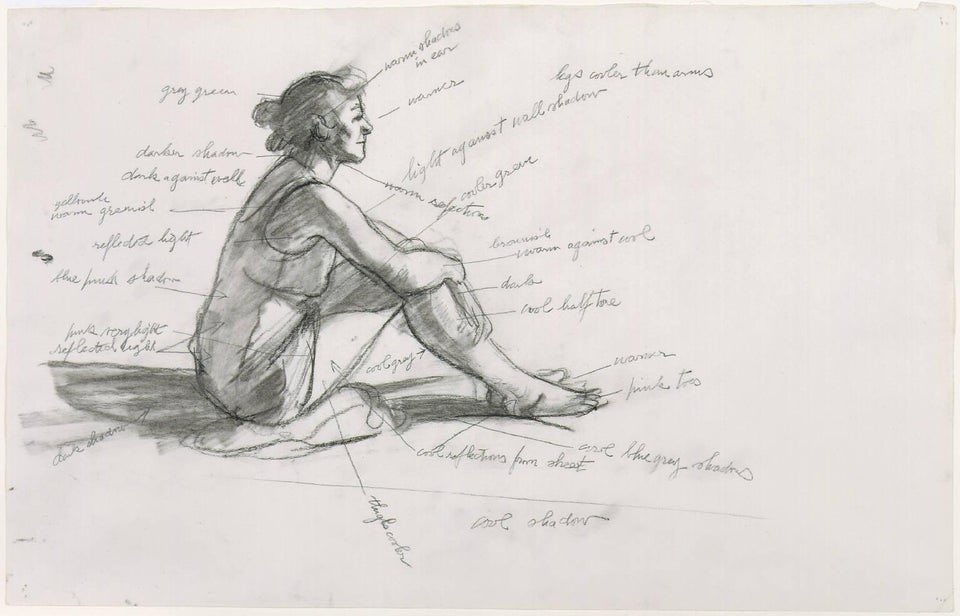 warm shadows
in ear
legs cooler than arms
grey green
warmer
light against wall shadow
darker shadow
dark against wall
cooler
warm reflection
warm greenish
reflected light
brownish
warm against cool
blue pink shadow
dark
cool half tone
pink very light
reflected light
cool gray
warmer
pink toes
dark shadow
cool reflections from sheet
cool blue gray shadows
thighs cooler
cool shadow